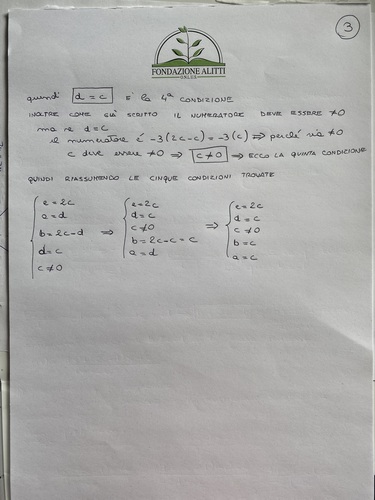 3
FONDAZIONE ALITTI
ONLUS
quindi d = c è la 4ª CONDIZIONE
INOLTRE COME GIÀ SCRITTO IL NUMERATORE DEVE ESSERE ≠0
ma se d=c
il numeratore è -3(2c-c) = -3(c) ⇒ perché sia ≠0
c deve essere ≠0 ⇒ c≠0 ⇒ ECCO LA QUINTA CONDIZIONE
QUINDI RIASSUMENDO LE CINQUE CONDIZIONI TROVATE
e=2c
a=d
b=2c-d
d=c
c≠0
⇒
e=2c
d=c
c≠0
b=2c-c=c
a=d
⇒
e=2c
d=c
c≠0
b=c
a=c